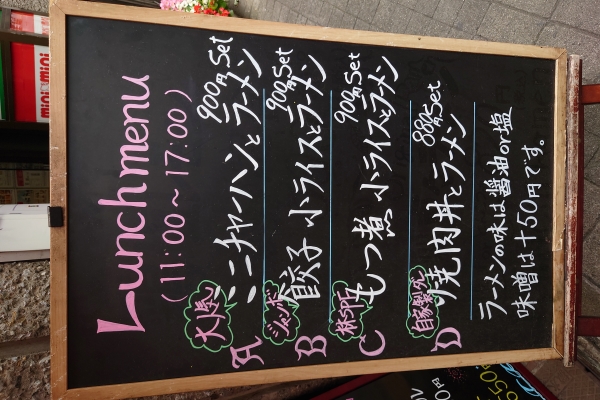 Lunch menu
(11:00～17:00)
900円 Set
大人気
A ミニチャーハンとラーメン
900円 Set
ジャンボ
B 餃子 小ライスとラーメン
900円 Set
C もつ煮 小ライスとラーメン
880円 Set
自家製ダレ
D 焼肉丼とラーメン
ラーメンの味は醤油or塩
味噌は+50円です。
mini mini